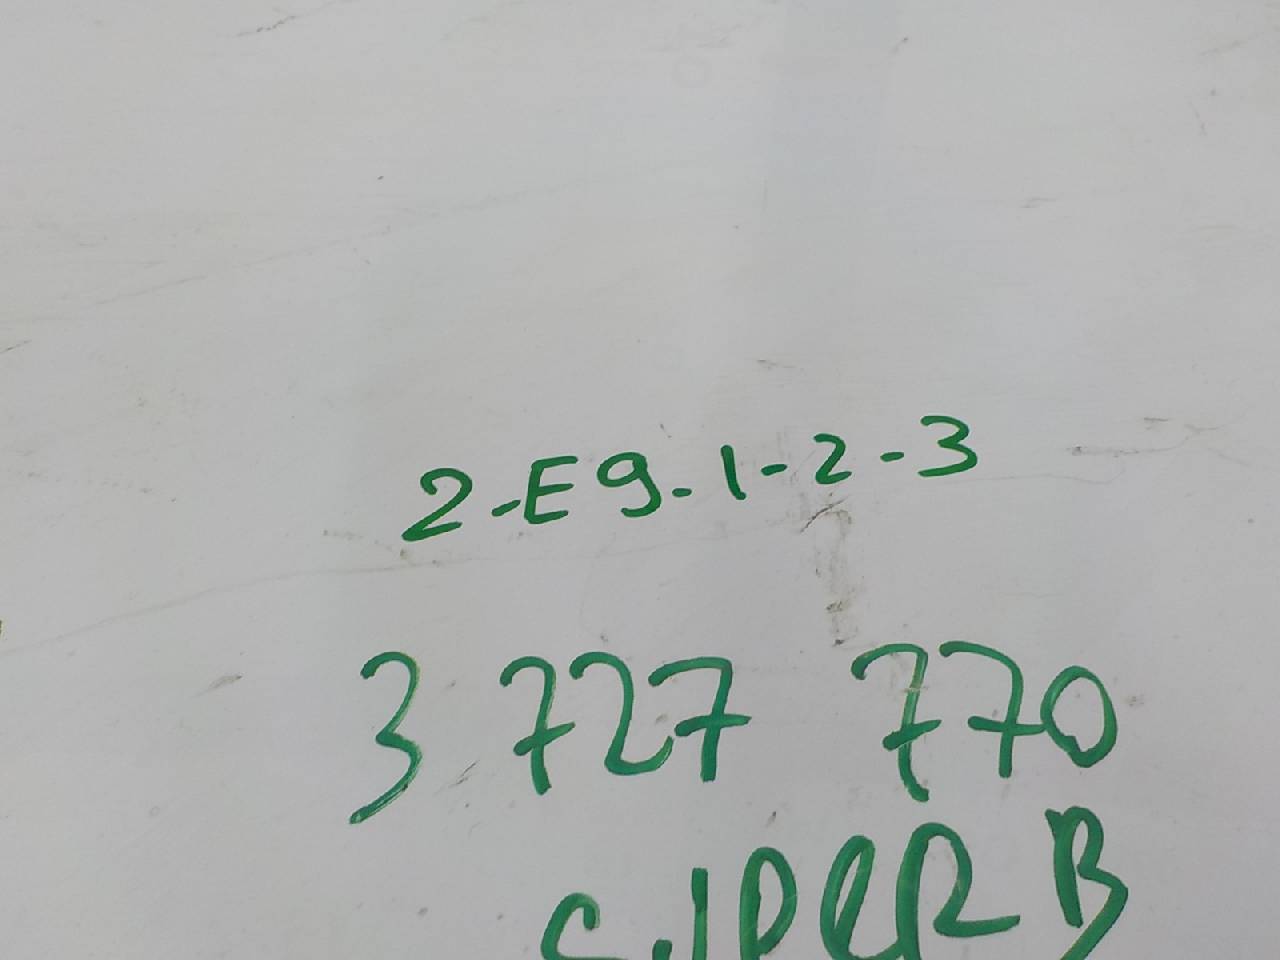 2-E9-1-2-3
3 727 770
SUPERB